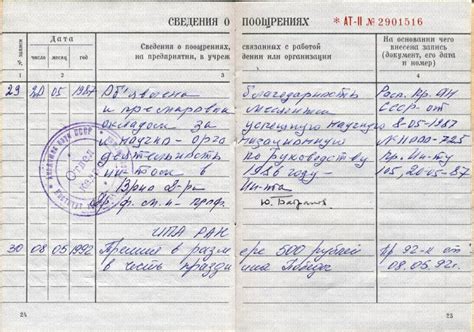 СВЕДЕНИЯ О ПООЩРЕНИЯХ
* АТ-II № 2901516
№ записи
Дата
число
месяц
год
Сведения о поощрениях, связанных с работой
на предприятии, в учреждении или организации
На основании чего
внесена запись
(документ, его дата
и номер)
1
2
3
4
29 20 05 1987 Объявлена благодарность Расп. Пр. АН
и премирован месячным СССР от
окладом за успешную научную 8-05-1987
и научно-орга низационную N 11000-725
деятельность по руководству Пр. Ин-ту
ин-том в 1986 году - 105, 20.05-87
Врио д-ра Ин-та
ИТА РАН
30 08 05 1992 Премия в разм ере 500 рублей Пр 92-к от
в честь праздн ика Победы 08.05.92г.
24
25